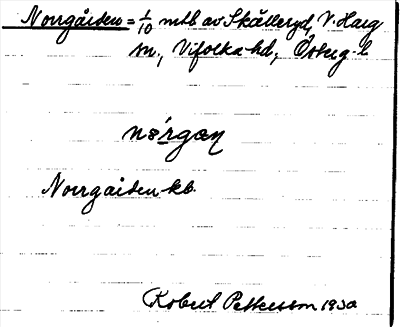 Norrgården = 1/10 mtl av Skålleryd, V. Harg
sn, Vifolka hd, Östug. l.
nørgaɳ
Norrgården kb.
Robert Pettersson 1930